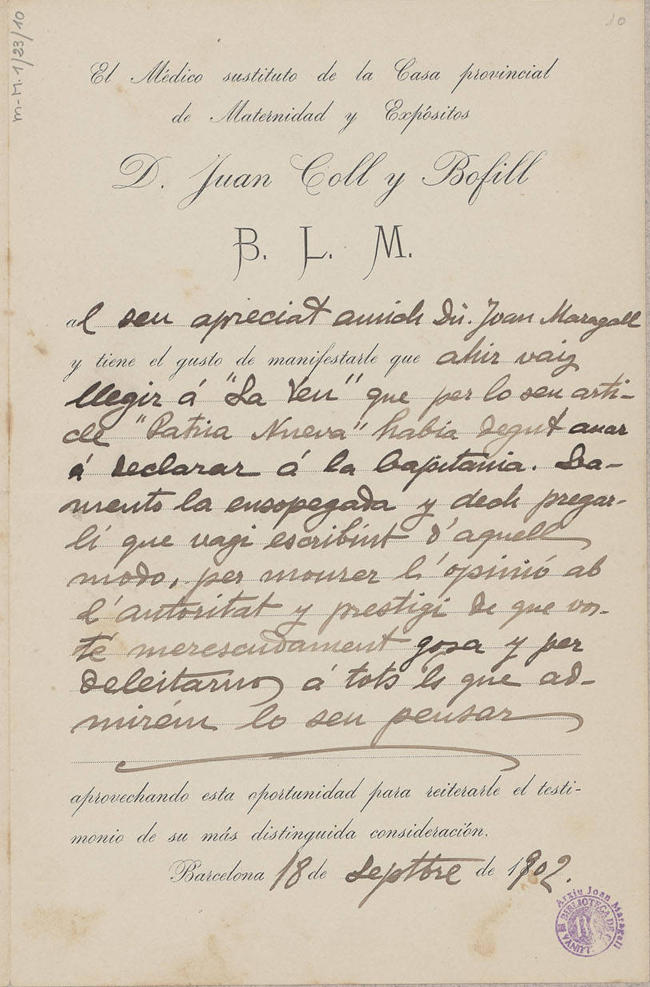 m-M.1/23/10
10
El Médico sustituto de la Casa provincial
de Maternidad y Expósitos
D. Juan Coll y Bofill
B. L. M.
al seu apreciat amich Dn. Joan Maragall
y tiene el gusto de manifestarle que ahir vaig
llegir á "La Veu" que per lo seu arti-
cle "Patria Nueva" habia degut anar
á declarar á la Capitania. La-
mento la ensopegada y dech pregar-
li que vagi escribint d'aquell
modo, per mourer l'opinió ab
l'autoritat y prestigi de que vos-
té merescudament gosa y per
deleitarnos á tots ls que ad-
mirém lo seu pensar
aprovechando esta oportunidad para reiterarle el testi-
monio de su más distinguida consideración.
Barcelona 18 de Septbre de 1902.
Arxiu Joan Maragall
BIBLIOTECA DE